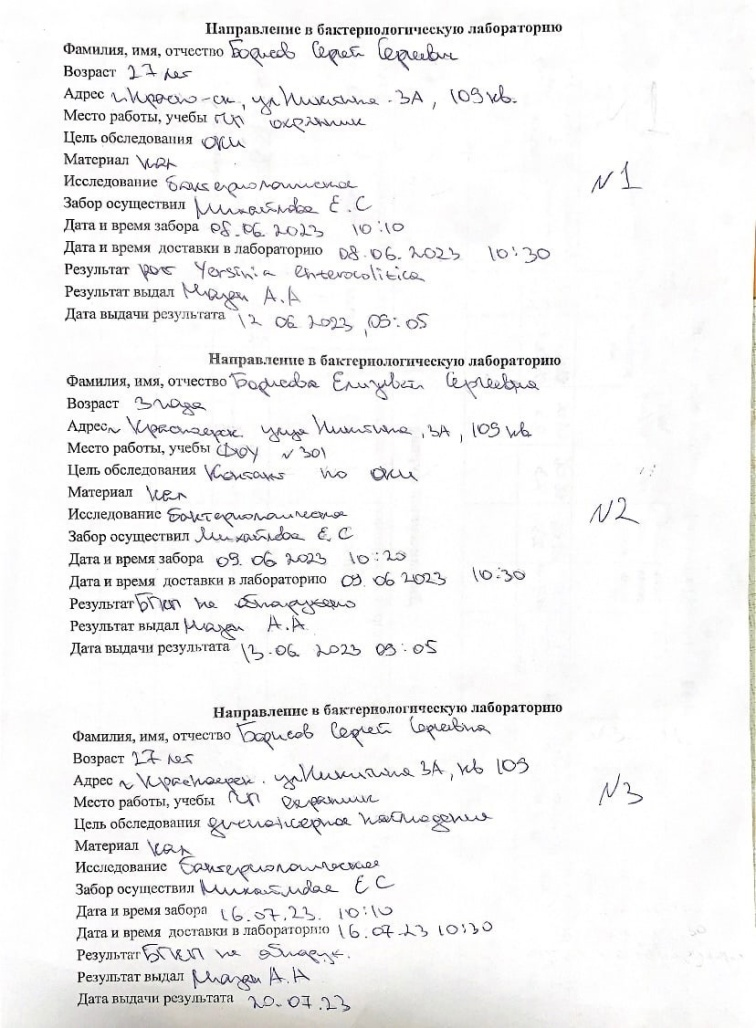 Направление в бактериологическую лабораторию
Фамилия, имя, отчество Борисов Сергей Сергеевич
Возраст 27 лет
Адрес г. Красно-ск, ул Никитина. 3А, 109 кв.
Место работы, учебы ЧП охранник
Цель обследования ОКИ
Материал кал
Исследование бактериологическое
N1
Забор осуществил Михайлова Е.С
Дата и время забора 08.06.2023 10:10
Дата и время доставки в лабораторию 08.06.2023 10:30
Результат рост Yersinia enterocolitica
Результат выдал А.А
Дата выдачи результата 12 06 2023, 09:05
Направление в бактериологическую лабораторию
Фамилия, имя, отчество Борисова Елизавета Сергеевна
Возраст 3 года
Адрес г. Красноярск. улица Никитина, 3А, 109 кв
Место работы, учебы ДОУ N 301
Цель обследования Контакт по ОКИ
Материал кал
Исследование бактериологическое
N2
Забор осуществил Михайлова Е.С
Дата и время забора 09.06 2023 10:20
Дата и время доставки в лабораторию 09.06 2023 10:30
Результат БПКП не обнаружено
Результат выдал А.А
Дата выдачи результата 13.06 2023 09:05
Направление в бактериологическую лабораторию
Фамилия, имя, отчество Борисов Сергей Сергеевич
Возраст 27 лет
Адрес г. Красноярск. ул Никитина 3А, кв 109
Место работы, учебы ЧП охранник
N3
Цель обследования диспансерное наблюдение
Материал кал
Исследование бактериологическое
Забор осуществил Михайлова Е С
Дата и время забора 16.07.23. 10:10
Дата и время доставки в лабораторию 16.07.23 10:30
Результат БПКП не обнаруж.
Результат выдал А.А
Дата выдачи результата 20.07.23